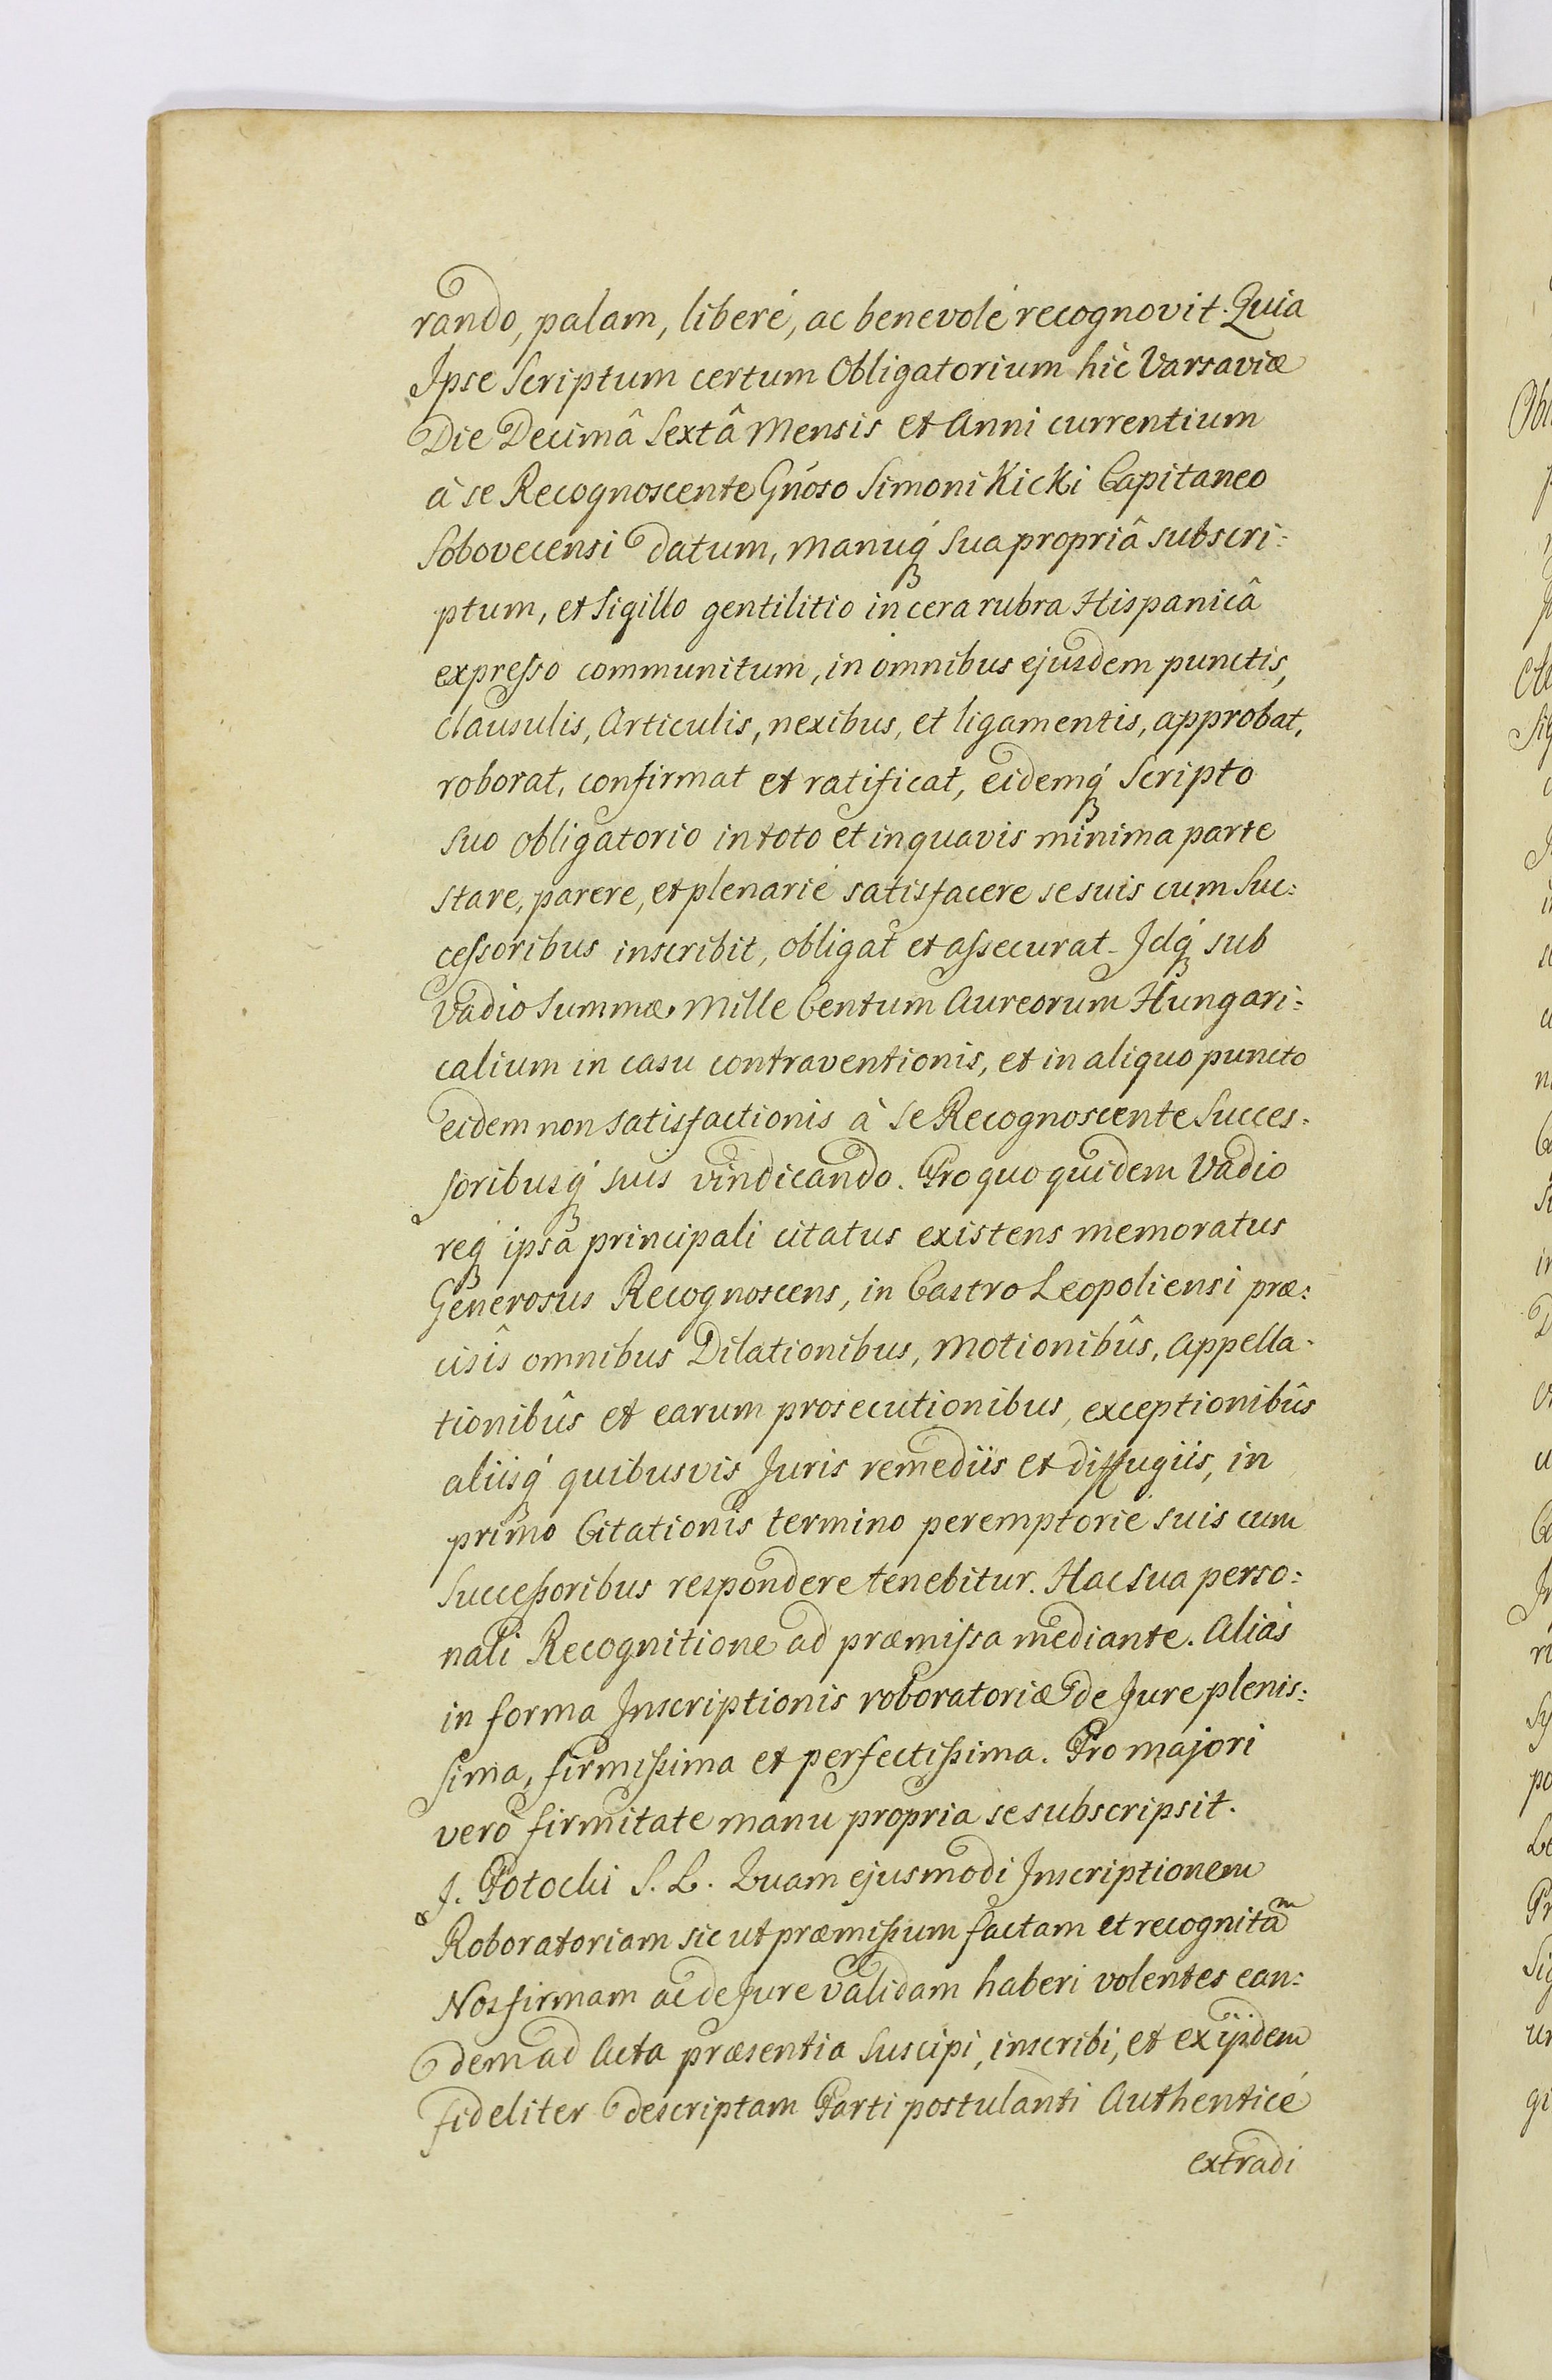 rando, palam, liberé, ac benevolé recognovit. Quia
Ipse Scriptum certum Obligatorium hic Varsaviæ
Die Decimâ Sextâ Mensis et Anni currentium
à se Recognoscente Gnoso Simoni Kicki Capitaneo
Sobovecensi datum, manuq́₃ sua propriâ subscri:
ptum, et Sigillo gentilitio in cera rubra Hispanicâ
expresso communitum, in omnibus ejusdem punctis,
Clausulis, Articulis, nexibus, et ligamentis, approbat,
roborat, confirmat et ratificat, eidemq́₃ Scripto
suo obligatorio in toto et in quavis minima parte
stare, parere, et plenarié satisfacere se suis cum Suc:
cessoribus inscribit, obligat et assecurat. Idq́₃ sub
Vadio Summæ Mille Centum Aureorum Hungari:
calium in casu contraventionis, et in aliquo puncto
eidem non satisfactionis à se Recognoscente Succes:
soribusq́₃ suis vindicando. Pro quo quidem Vadio
req́₃ ipsa principali citatus existens memoratus
Generosus Recognoscens, in Castro Leopoliensi præ:
cisîs omnibus Dilationibus, Motionibûs, Appella:
tionibûs et earum prosecutionibus, exceptionibûs
aliisq́₃ quibusvis Juris remediis et diffugiis, in
primo Citationis termino peremptorié suis cum
Successoribus respondere tenebitur. Hac sua perso:
nali Recognitione ad præmissa mediante. Aliàs
in forma Inscriptionis roboratoriæ de Jure plenis:
sima, firmissima et perfectissima. Pro majori
vero firmitate manu propria se subscripsit.
J. Potocki S. L. Quam ejusmodi Inscriptionem
Roboratoriam sic ut præmissum factam et recognitaᵐ
Nos firmam ac de Jure validam haberi volentes ean:
dem ad Acta præsentia suscipi, inscribi, et ex ijsdem
fideliter descriptam Parti postulanti Authenticé
extradi